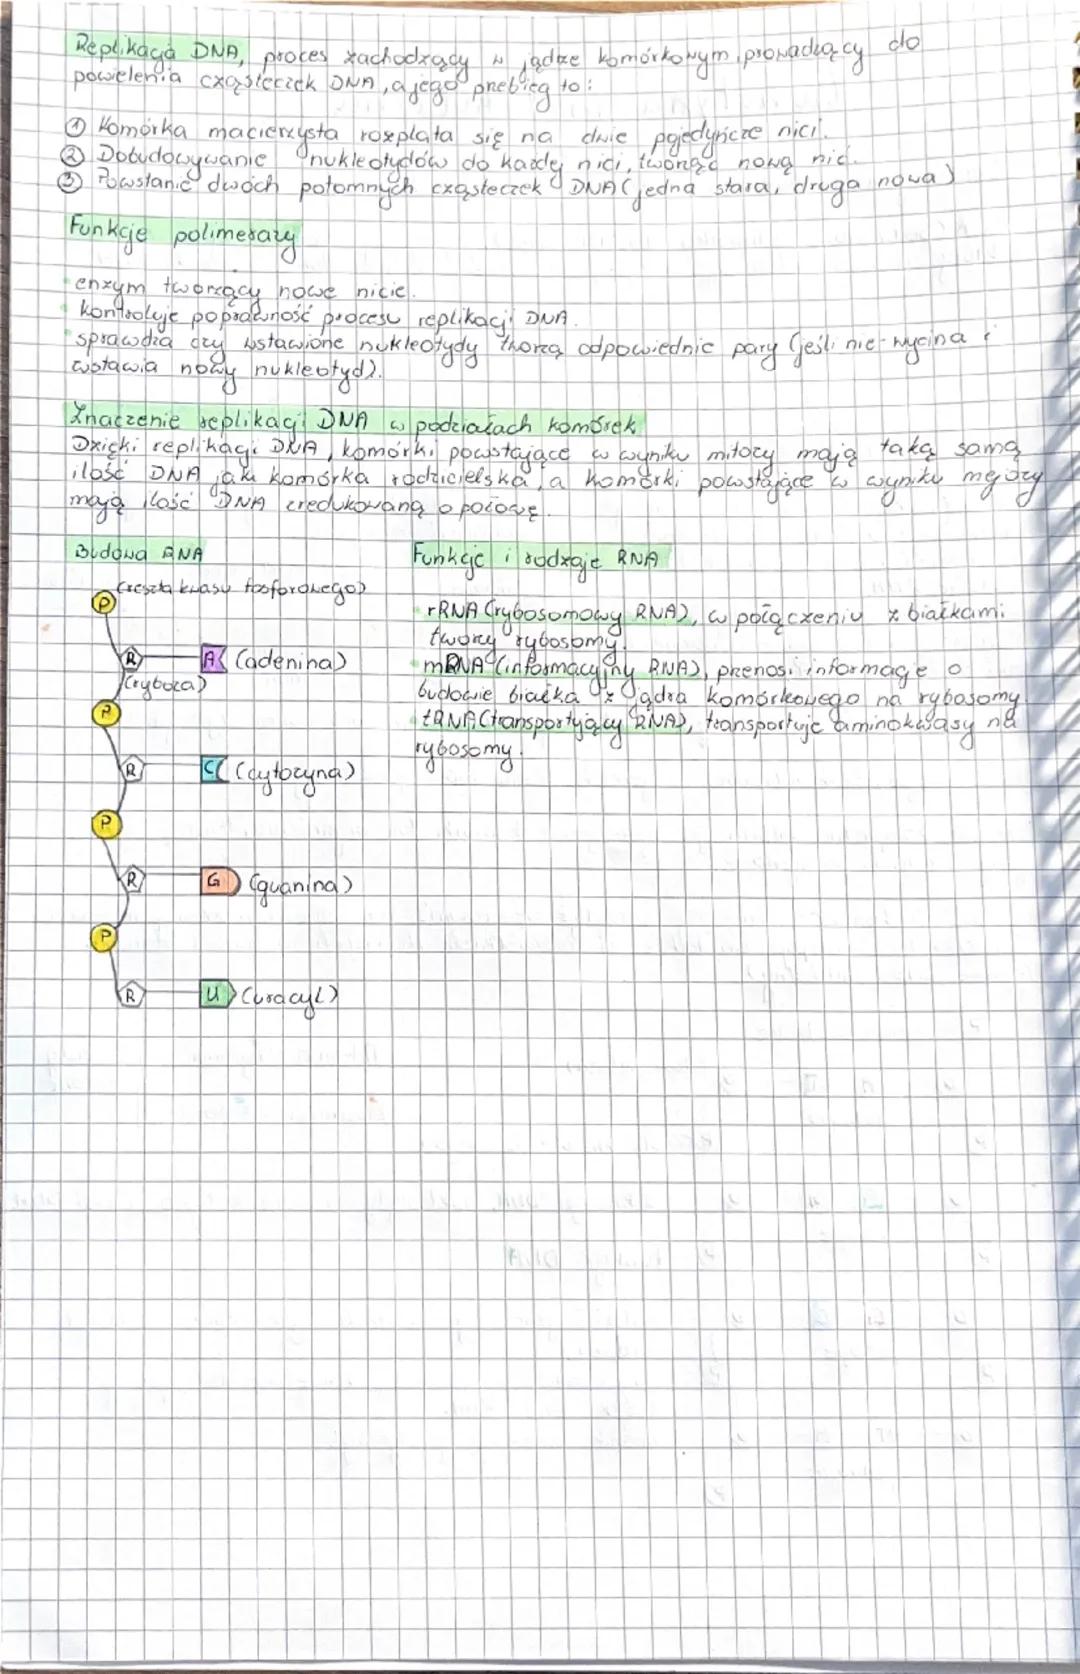 Replikacja DNA, proces zachodzący w jądrze komórkowym, prowadzący do
powielenia cząsteczek DNA, a jego przebieg to:
① Komórka macierzysta rozplata się na dwie pojedyńcze nici.
② Dobudowywanie nukleotydów do każdej nici, tworząc nową nić.
③ Powstanie dwóch potomnych cząsteczek DNA (jedna stara, druga nowa)
Funkcje polimerazy
• enzym tworzący nowe nicie.
• kontroluje poprawność procesu replikacji DNA.
• sprawdza czy wstawione nukleotydy tworzą odpowiednie pary (jeśli nie - wycina i
wstawia nowy nukleotyd).
Znaczenie replikacji DNA w podziałach komórek
Dzięki replikacji DNA, komórki powstające w wyniku mitozy mają taką samą
ilość DNA jak komórka rodzicielska, a komórki powstające w wyniku mejozy
mają ilość DNA zredukowaną o połowę.
Budowa RNA
P (reszta kwasu fosforowego)
R A (adenina)
(ryboza)
P
R C (cytozyna)
P
R G (guanina)
P
R U (uracyl)
Funkcje i rodzaje RNA
• rRNA (rybosomowy RNA), w połączeniu z białkami
tworzy rybosomy.
• mRNA (informacyjny RNA), przenosi informacje o
budowie białka z jądra komórkowego na rybosomy.
• tRNA (transportujący RNA), transportuje aminokwasy na
rybosomy.